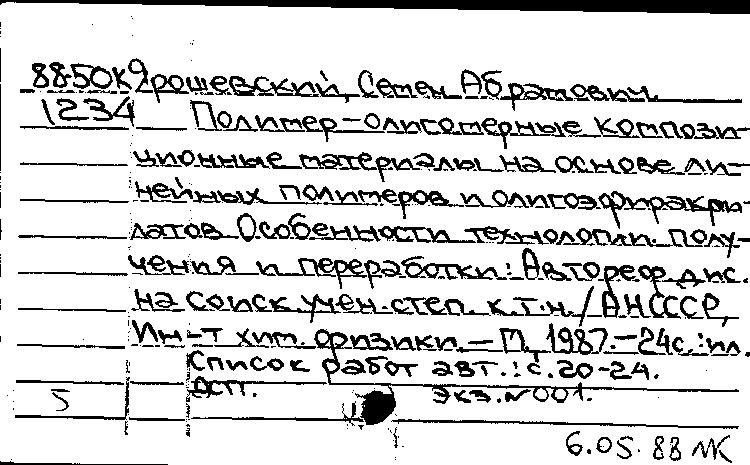 88-50к Ярошевский, Семен Абрамович
1234 Полимер-олигомерные компози-
ционные материалы на основе ли-
нейных полимеров и олигоэфиракри-
латов Особенности технологии полу-
чения и переработки: Автореф. дис.
на соиск. учен. степ. к.т.н./АН СССР,
Ин-т хим. физики. – М., 1987. – 24с.: ил.
Список работ авт.: с. 20-24.
5 ДСП. Экз. N 001.
6.05.88